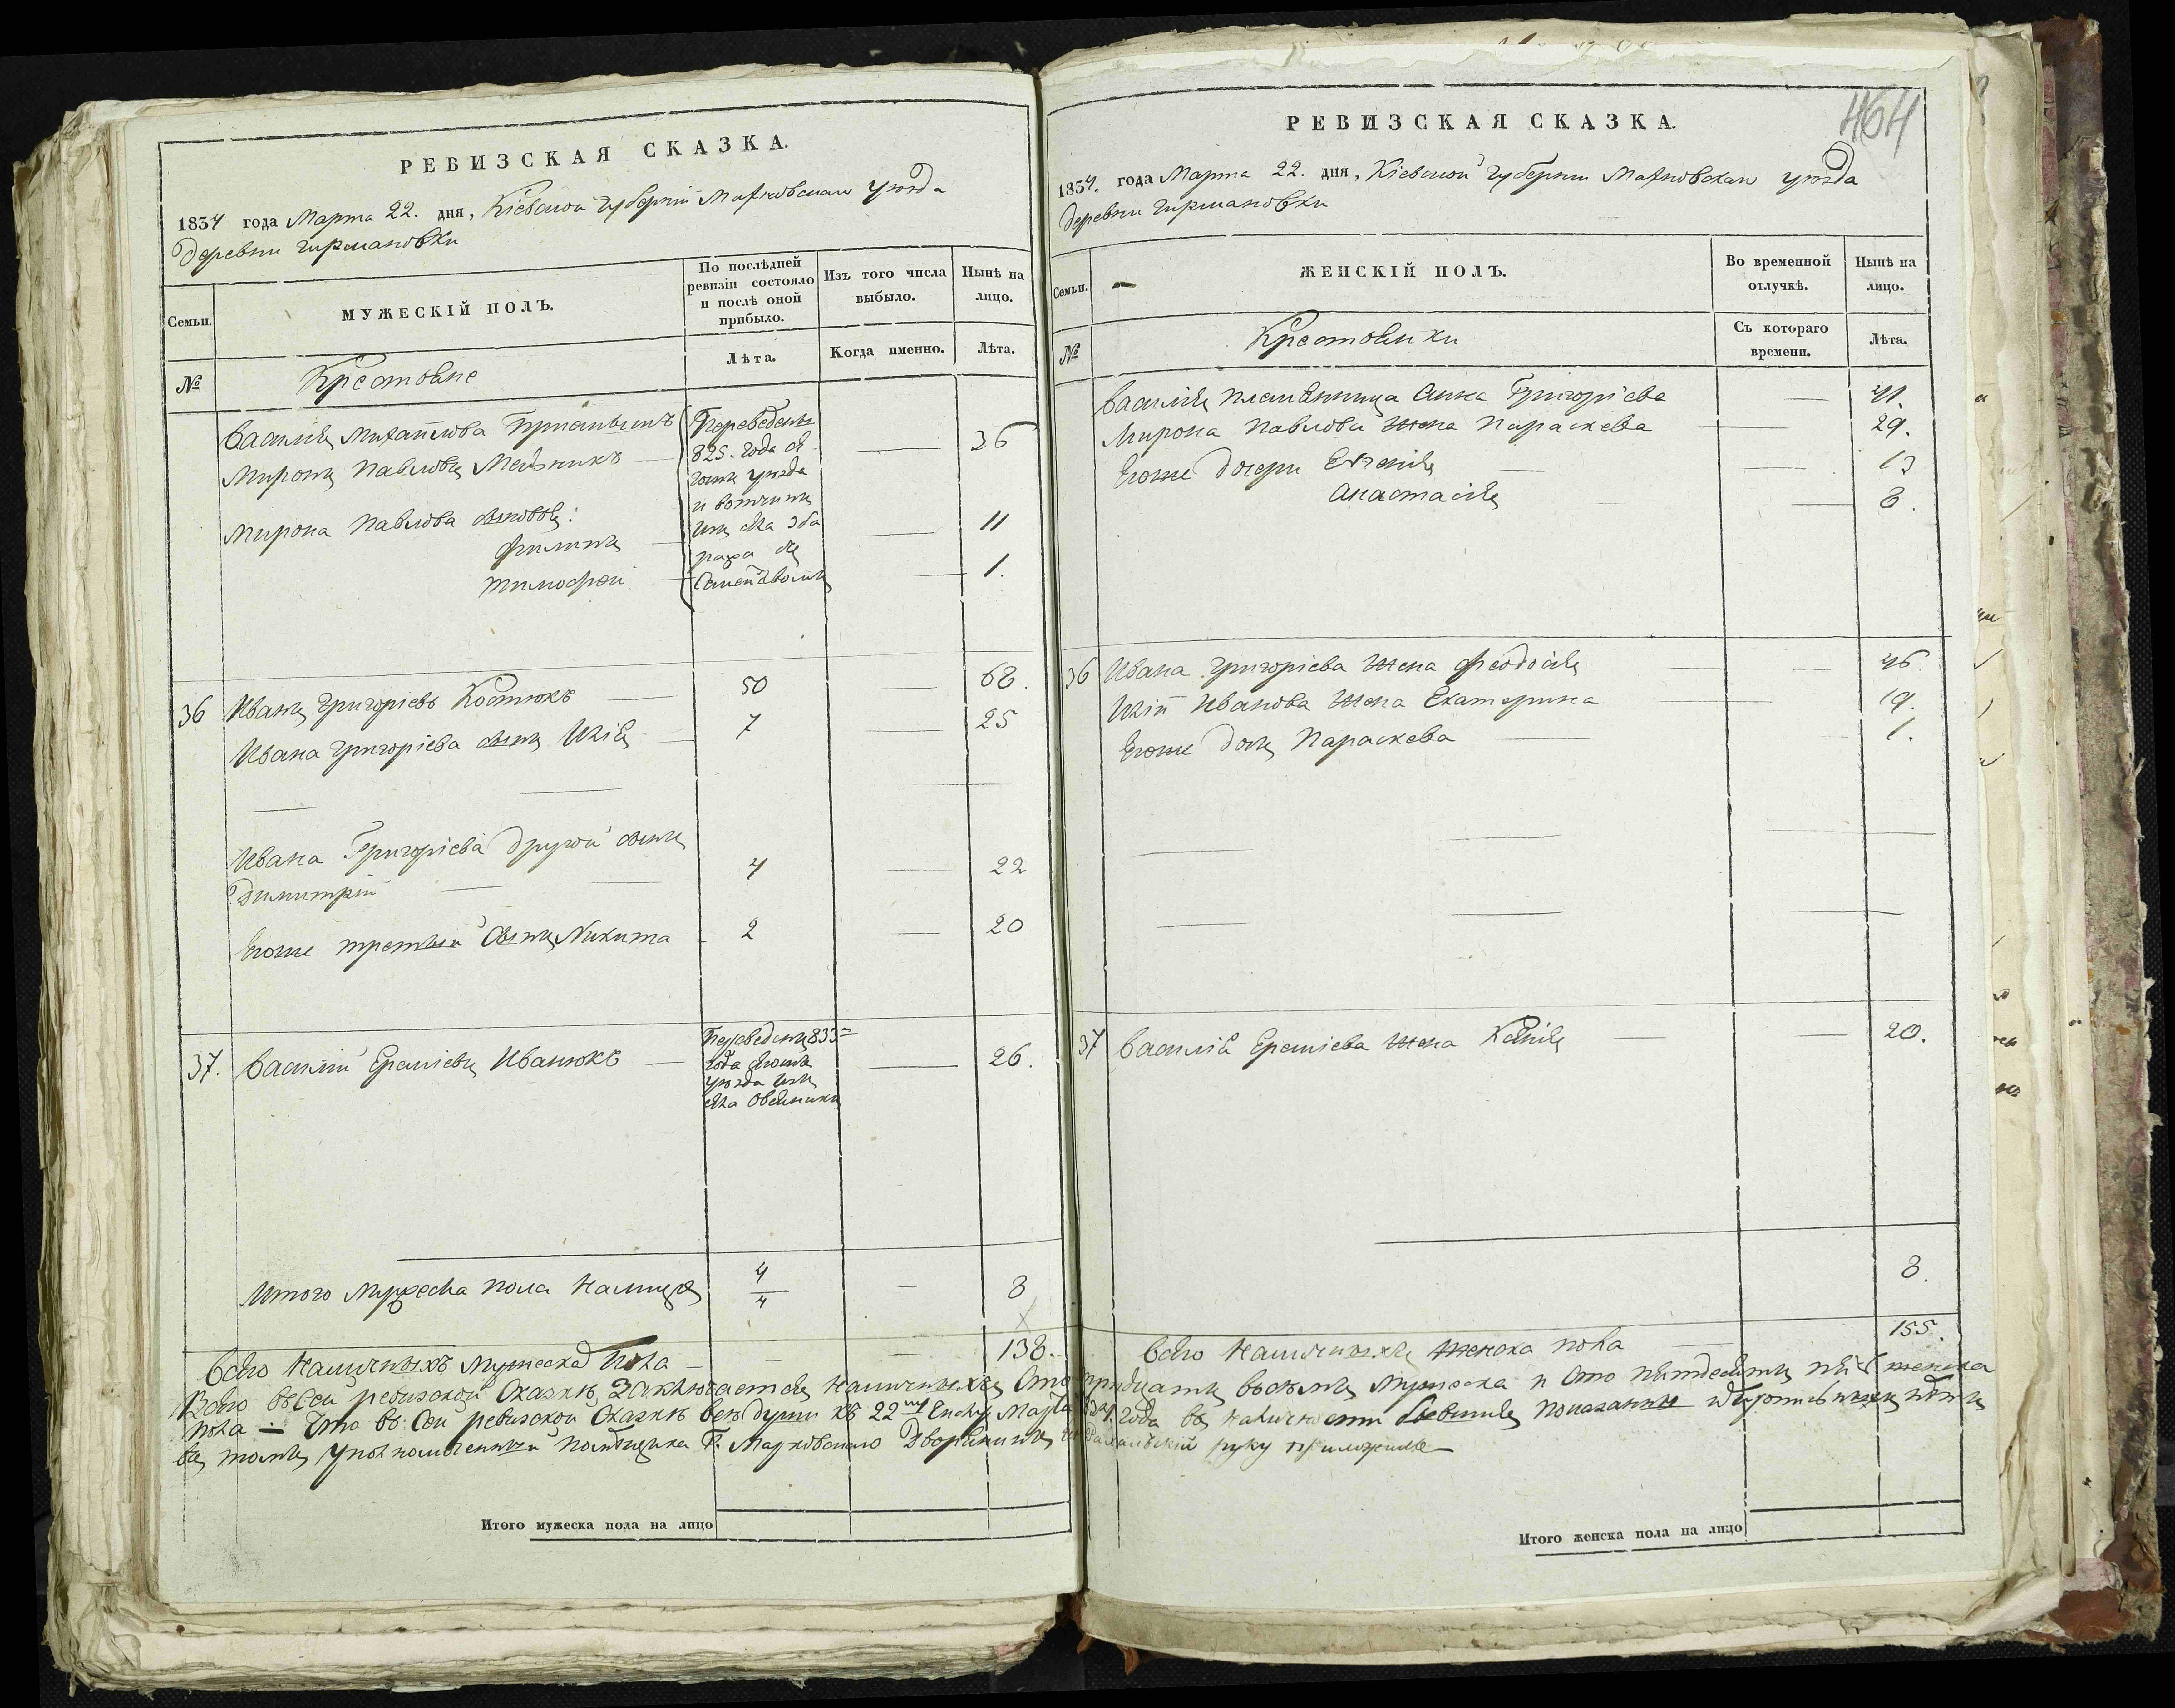 РЕВИЗСКАЯ СКАЗКА.
1834 года Марта 22. дня, Кіевской губерніи Махновскаго уѣзда
деревни
Семьи.
МУЖЕСКІЙ ПОЛЪ.
По послѣдней ревизіи состояло и послѣ оной прибыло.
Изъ того числа выбыло.
Нынѣ на лицо.
№
Крестьяне
Лѣта.
Когда именно.
Лѣта.
Василія Михайлова
Миронъ Павловъ Мельникъ 36
Переведены
825. года
уѣзда
и вотчины
изъ села
Мирона Павлова сыновья:
Филипъ 11
Тимофей 1.
36 Иванъ Григоріевъ Костюкъ 50 68.
Ивана Григоріева сынъ Илія 7 25
Ивана Григоріева другой сынъ
Димитрій 4 22
Егоже третый сынъ Никита 2 20
37. Василій Ереміевъ Иванюкъ 26.
Переведенъ 833
года
уѣзда изъ
села
Итого мужеска пола на лицо 4/4 8
Всего наличныхъ мужеска пола 138.
Итого мужеска пола на лицо
464
РЕВИЗСКАЯ СКАЗКА.
1834. года Марта 22. дня, Кіевской губерніи Махновскаго уѣзда
деревни
Семьи.
ЖЕНСКІЙ ПОЛЪ.
Во временной отлучкѣ.
Нынѣ на лицо.
№
Крестьянки
Съ котораго времени.
Лѣта.
Василія племянница Анна Григоріева 41.
Мирона Павлова жена Параскева 29.
Егоже дочери Евгенія 13
Анастасія 8.
36 Ивана Григоріева жена Феодосія 46.
Иліи Иванова жена Екатерина 19.
Егоже дочь Параскева 1.
37 Василія Ереміева жена Ксенія 20.
8.
Всего наличныхъ женска пола 155.
Всего въ сей ревизской сказкѣ заключается наличныхъ сто тридцать восьмъ мужеска и сто пятдесятъ пять женска
пола — Что въ сей ревизской сказкѣ всѣ души къ 22му числу Марта 834. года въ наличности
въ томъ уполномоченный помѣщика Г. Марковскаго дворянинъ руку приложилъ
Итого женска пола на лицо